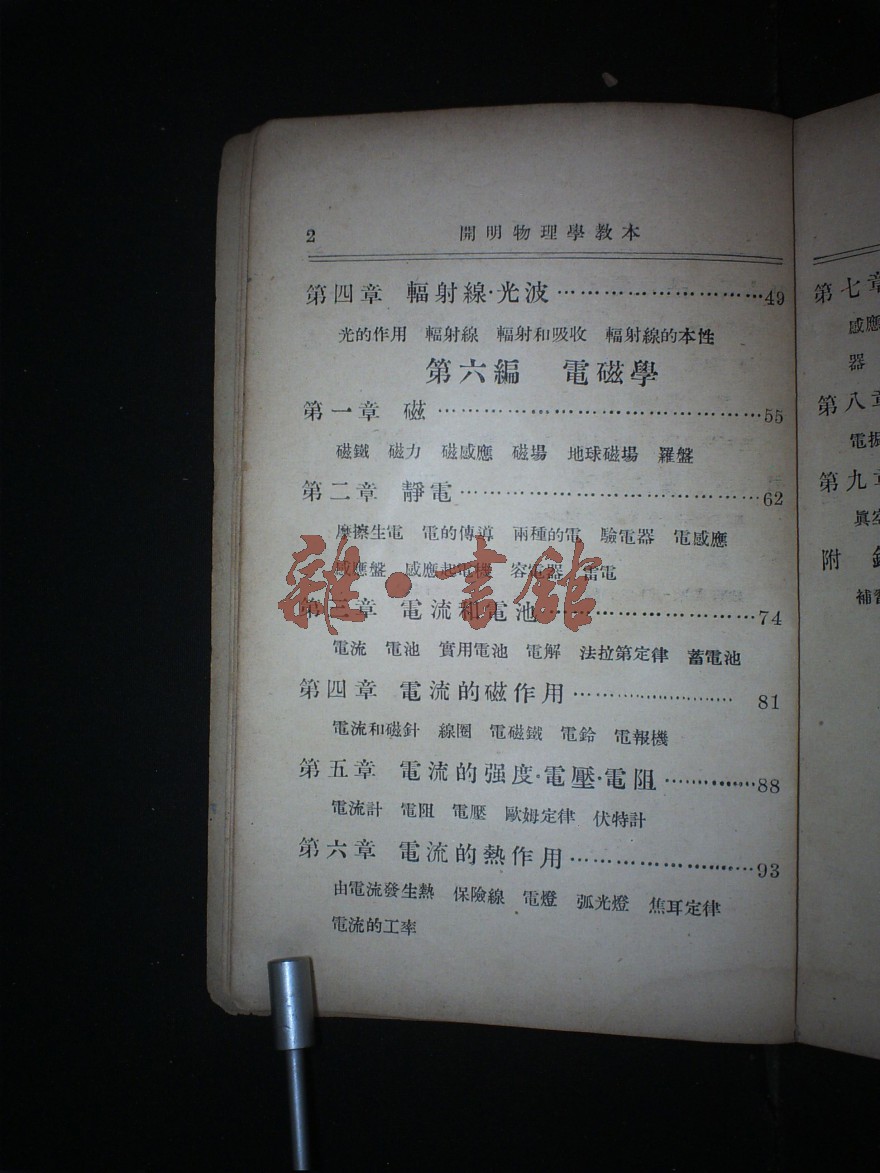 2 開明物理學教本
第四章 輻射線·光波……………………49
光的作用 輻射線 輻射和吸收 輻射線的本性
第六編 電磁學
第一章 磁……………………………………55
磁鐵 磁力 磁感應 磁場 地球磁場 羅盤
第二章 靜電…………………………………62
摩擦生電 電的傳導 兩種的電 驗電器 電感應
感應盤 感應起電機 容電器 雷電
第三章 電流和電池………………………74
電流 電池 實用電池 電解 法拉第定律 蓄電池
第四章 電流的磁作用…………………81
電流和磁針 線圈 電磁鐵 電鈴 電報機
第五章 電流的强度·電壓·電阻…………88
電流計 電阻 電壓 歐姆定律 伏特計
第六章 電流的熱作用……………………93
由電流發生熱 保險線 電燈 弧光燈 焦耳定律
電流的工率
雜·書館
第七章
感應
器
第八章
電振
第九章
眞空
附
補